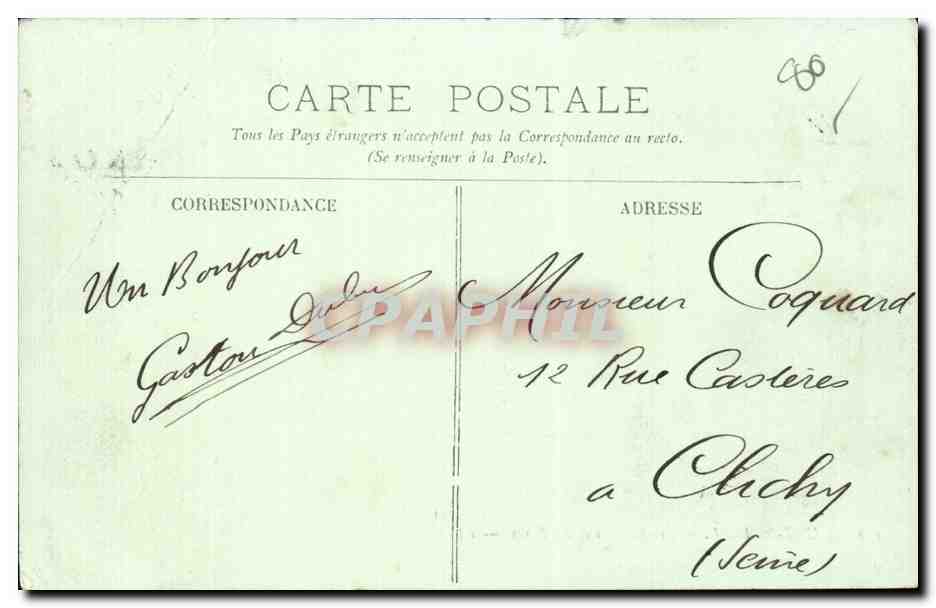 80
CARTE POSTALE
Tous les Pays étrangers n'acceptent pas la Correspondance au recto.
(Se renseigner à la Poste).
CORRESPONDANCE
Un Bonjour
Gaston
ADRESSE
Monsieur Coquard
12 Rue Castères
a Clichy
(Seine)
CPAPHIL